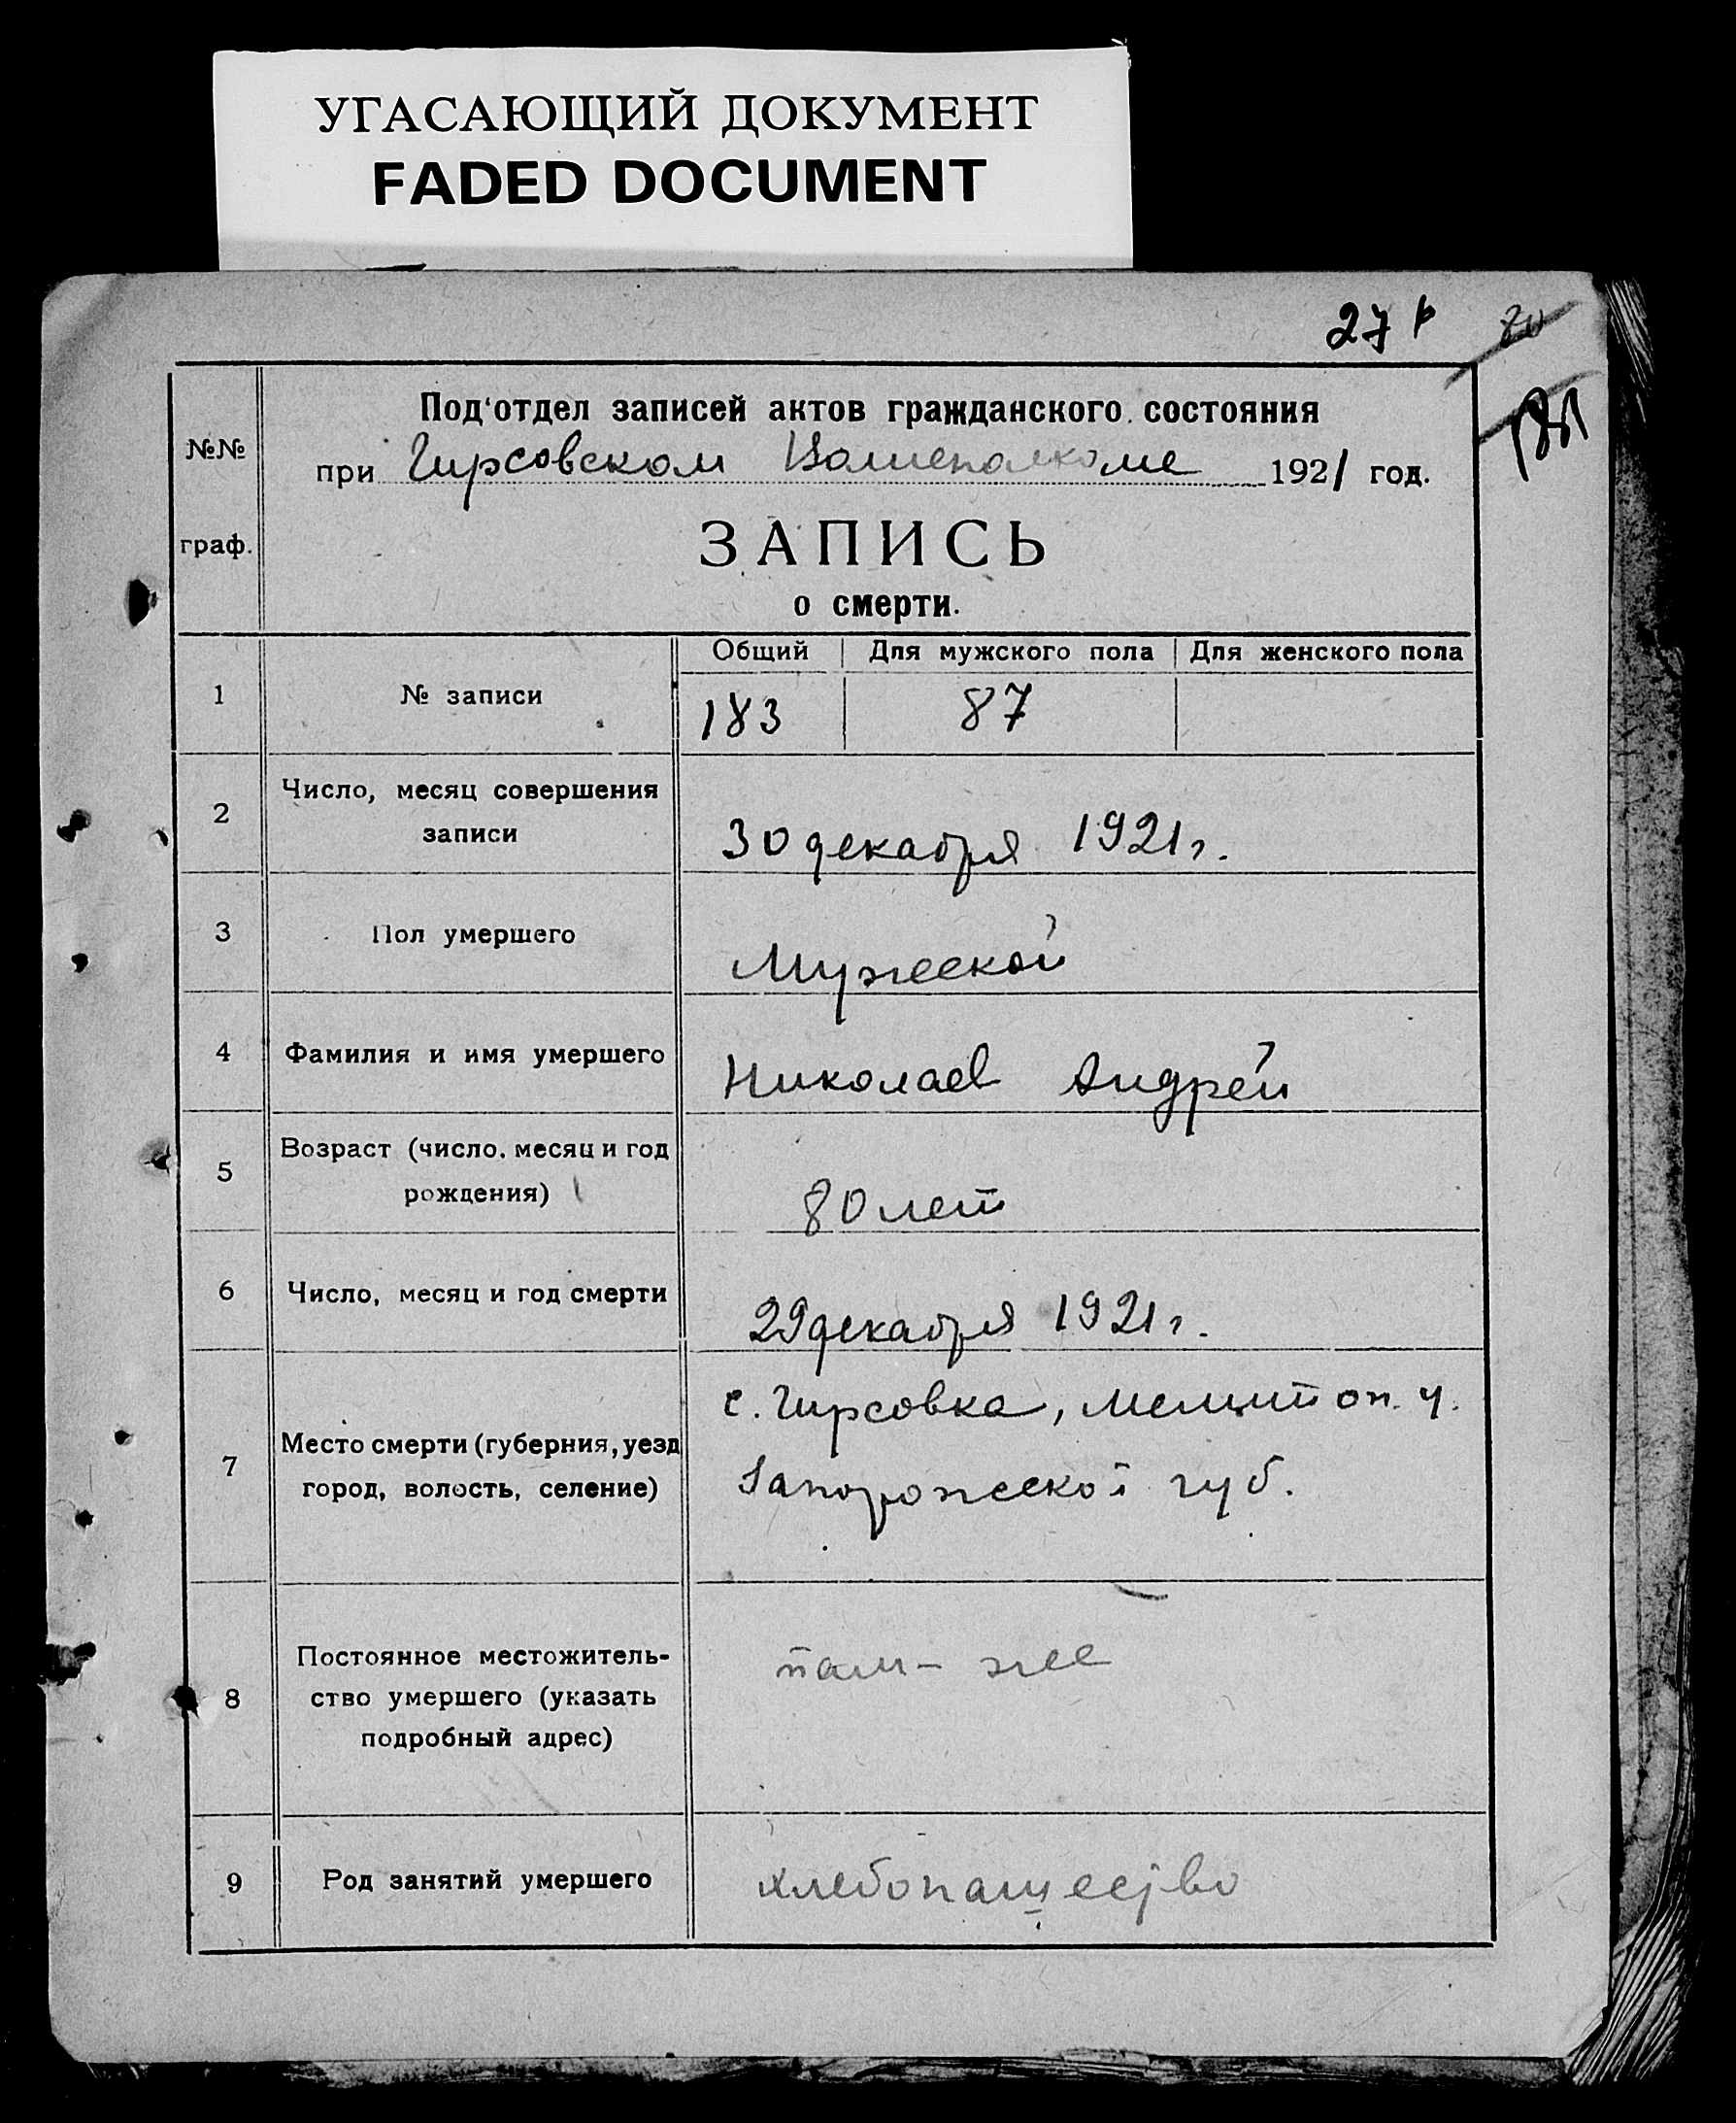 УГАСАЮЩИЙ ДОКУМЕНТ
FADED DOCUMENT
27
№№ граф.
Под‘отдел записей актов гражданского состояния
при Гирсовском Волисполкоме 1921 год.
ЗАПИСЬ
о смерти.
Общий Для мужского пола Для женского пола
1 № записи 183 87
2 Число, месяц совершения
записи 30 декабря 1921 г.
3 Пол умершего Мужеской
4 Фамилия и имя умершего Николаев Андрей
5 Возраст (число, месяц и год
рождения) 80 лет
6 Число, месяц и год смерти 29 декабря 1921 г.
7 Место смерти (губерния, уезд
город, волость, селение)
с. Гирсовка, Мелитоп. у.
Запорожской губ.
8 Постоянное местожитель-
ство умершего (указать
подробный адрес)
там-же
9 Род занятий умершего хлебопащество